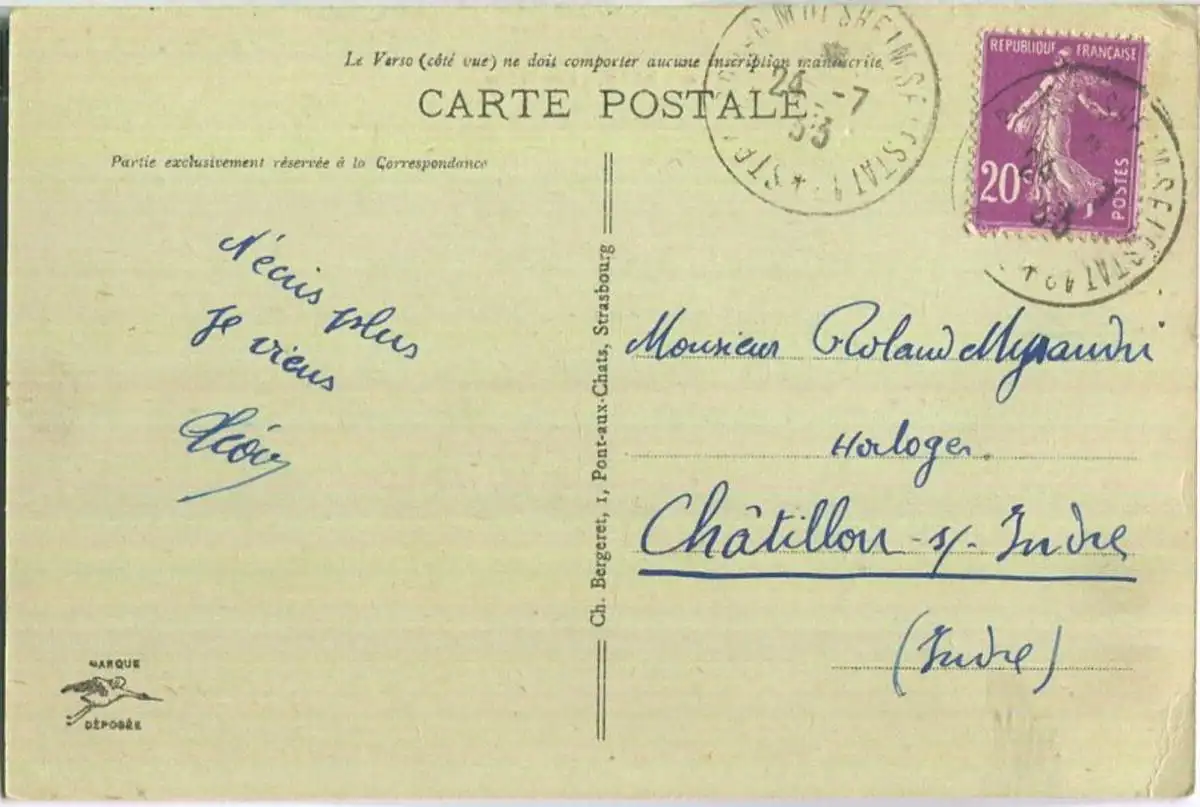 Le Verso (côté vue) ne doit comporter aucune inscription manuscrite.
CARTE POSTALE
REPUBLIQUE FRANÇAISE
20c
POSTES
MOLSHEIM SELESTAT 1
24 -7
33
SELESTAT
24
33
Partie exclusivement réservée à la Correspondance
N'écris plus
Je viens
Ch. Bergeret, 1, Pont-aux-Chats, Strasbourg
Monsieur Roland
Horloger
Châtillon-s/-Indre
(Indre)
MARQUE
DÉPOSÉE